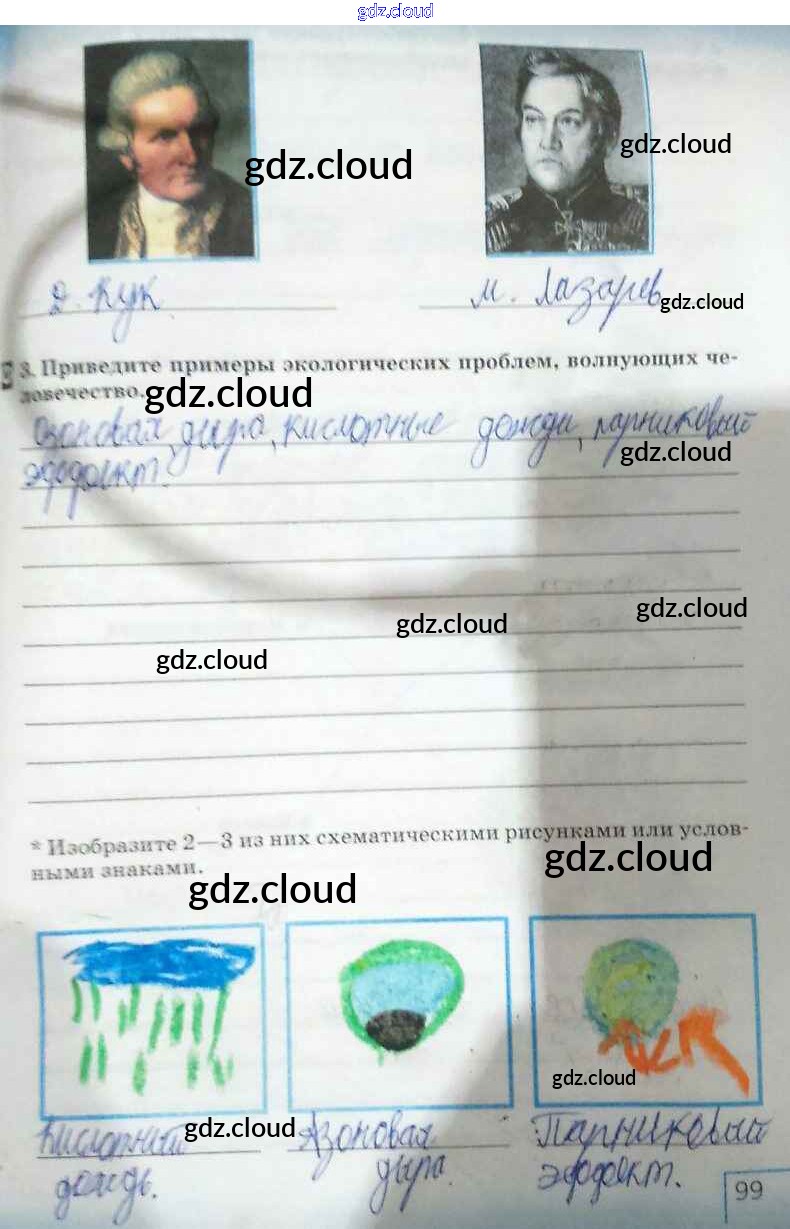 gdz.cloud
gdz.cloud
gdz.cloud
Д. Кук
М. Лазарев
gdz.cloud
3. Приведите примеры экологических проблем, волнующих че-
ловечество.
gdz.cloud
Озоновая дыра, кислотные дожди, парниковый
gdz.cloud
эффект.
gdz.cloud
gdz.cloud
gdz.cloud
* Изобразите 2—3 из них схематическими рисунками или услов-
ными знаками.
gdz.cloud
gdz.cloud
gdz.cloud
Кислотный
дождь.
gdz.cloud
Озоновая
дыра.
Парниковый
эффект.
99